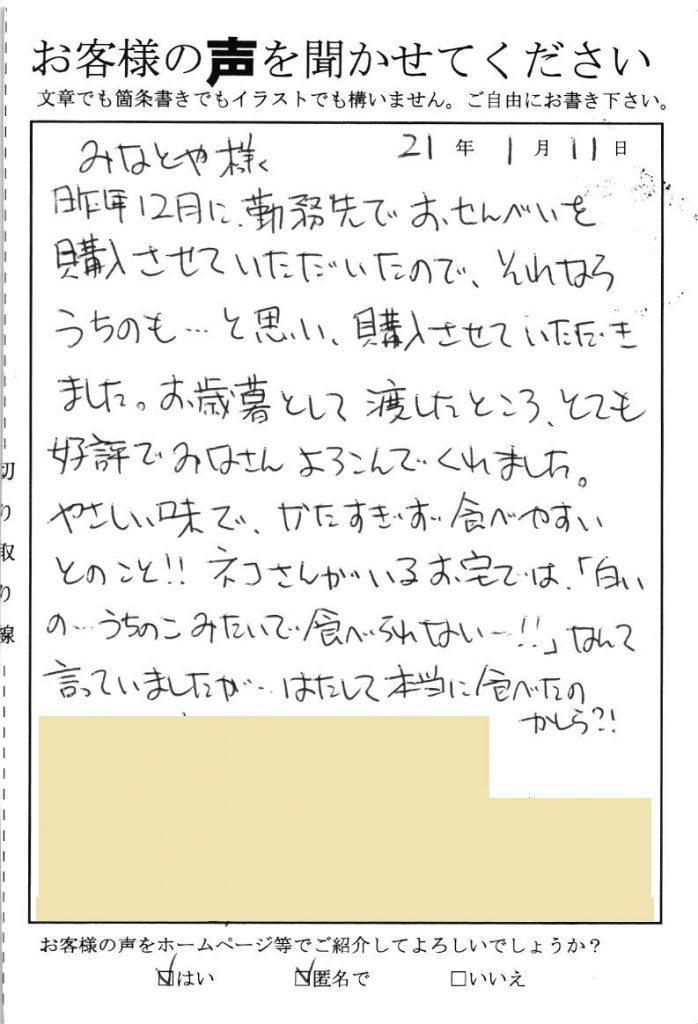 お客様の声を聞かせてください
文章でも箇条書きでもイラストでも構いません。ご自由にお書き下さい。
21年 1月 11日
みなとや様
昨年12月に、勤務先でおせんべいを
購入させていただいたので、それなら
うちのも…と思い、購入させていただき
ました。お歳暮として渡したところ、とても
好評でみなさんよろこんでくれました。
やさしい味で、かたすぎず食べやすい
とのこと!! ネコさんがいるお宅では、「白い
の…うちのこみたいで食べられないー!!」なんて
言っていましたが…はたして本当に食べたの
かしら?!
切り取り線
お客様の声をホームページ等でご紹介してよろしいでしょうか？
☑はい ☑匿名で □いいえ